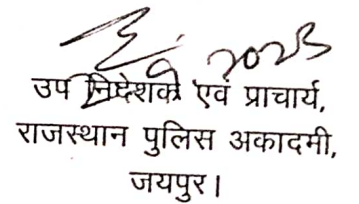 2023
उप निदेशक एवं प्राचार्य,
राजस्थान पुलिस अकादमी,
जयपुर।